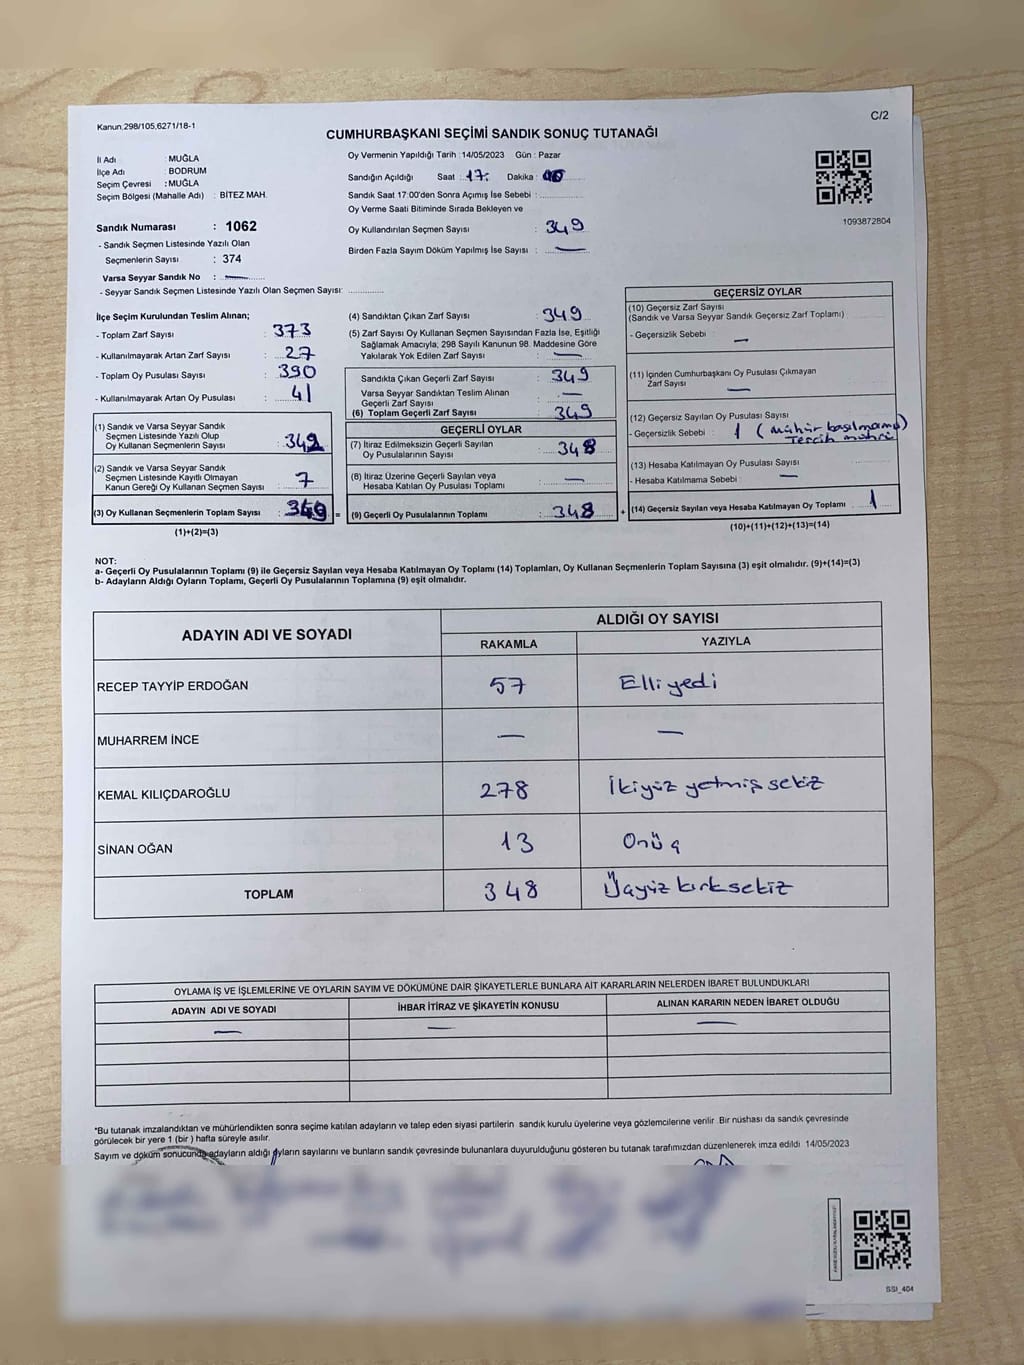 Kanun,298/105,6271/18-1
C/2
CUMHURBAŞKANI SEÇİMİ SANDIK SONUÇ TUTANAĞI
İl Adı : MUĞLA
İlçe Adı : BODRUM
Seçim Çevresi : MUĞLA
Seçim Bölgesi (Mahalle Adı) : BİTEZ MAH.
Sandık Numarası : 1062
- Sandık Seçmen Listesinde Yazılı Olan
Seçmenlerin Sayısı : 374
Varsa Seyyar Sandık No : —
- Seyyar Sandık Seçmen Listesinde Yazılı Olan Seçmen Sayısı: ..............
Oy Vermenin Yapıldığı Tarih :14/05/2023 Gün : Pazar
Sandığın Açıldığı Saat : 17: Dakika :
Sandık Saat 17:00'den Sonra Açımış İse Sebebi : ..............
Oy Verme Saati Bitiminde Sırada Bekleyen ve
Oy Kullandırılan Seçmen Sayısı : 349
Birden Fazla Sayım Döküm Yapılmış İse Sayısı : —
1093872804
İlçe Seçim Kurulundan Teslim Alınan;
- Toplam Zarf Sayısı : 373
- Kullanılmayarak Artan Zarf Sayısı : 27
- Toplam Oy Pusulası Sayısı : 390
- Kullanılmayarak Artan Oy Pusulası : 41
(1) Sandık ve Varsa Seyyar Sandık
Seçmen Listesinde Yazılı Olup
Oy Kullanan Seçmenlerin Sayısı : 342
(2) Sandık ve Varsa Seyyar Sandık
Seçmen Listesinde Kayıtlı Olmayan
Kanun Gereği Oy Kullanan Seçmen Sayısı : 7
(3) Oy Kullanan Seçmenlerin Toplam Sayısı : 349 =
(1)+(2)=(3)
(4) Sandıktan Çıkan Zarf Sayısı : 349
(5) Zarf Sayısı Oy Kullanan Seçmen Sayısından Fazla İse, Eşitliği
Sağlamak Amacıyla; 298 Sayılı Kanunun 98. Maddesine Göre
Yakılarak Yok Edilen Zarf Sayısı : —
Sandıkta Çıkan Geçerli Zarf Sayısı : 349
Varsa Seyyar Sandıktan Teslim Alınan
Geçerli Zarf Sayısı : —
(6) Toplam Geçerli Zarf Sayısı : 349
GEÇERLİ OYLAR
(7) İtiraz Edilmeksizin Geçerli Sayılan
Oy Pusulalarının Sayısı : 348
(8) İtiraz Üzerine Geçerli Sayılan veya
Hesaba Katılan Oy Pusulası Toplamı : —
(9) Geçerli Oy Pusulalarının Toplamı : 348 +
GEÇERSİZ OYLAR
(10) Geçersiz Zarf Sayısı
(Sandık ve Varsa Seyyar Sandık Geçersiz Zarf Toplamı)
- Geçersizlik Sebebi : —
(11) İçinden Cumhurbaşkanı Oy Pusulası Çıkmayan
Zarf Sayısı —
(12) Geçersiz Sayılan Oy Pusulası Sayısı
- Geçersizlik Sebebi : 1 (mühür basılmamış)
Tercih mührü
(13) Hesaba Katılmayan Oy Pusulası Sayısı
- Hesaba Katılmama Sebebi —
(14) Geçersiz Sayılan veya Hesaba Katılmayan Oy Toplamı : 1
(10)+(11)+(12)+(13)=(14)
NOT:
a- Geçerli Oy Pusulalarının Toplamı (9) ile Geçersiz Sayılan veya Hesaba Katılmayan Oy Toplamı (14) Toplamları, Oy Kullanan Seçmenlerin Toplam Sayısına (3) eşit olmalıdır. (9)+(14)=(3)
b- Adayların Aldığı Oyların Toplamı, Geçerli Oy Pusulalarının Toplamına (9) eşit olmalıdır.
ADAYIN ADI VE SOYADI
ALDIĞI OY SAYISI
RAKAMLA YAZIYLA
RECEP TAYYİP ERDOĞAN 57 Elli yedi
MUHARREM İNCE — —
KEMAL KILIÇDAROĞLU 278 İkiyüz yetmiş sekiz
SİNAN OĞAN 13 Onüç
TOPLAM 348 Üçyüz kırksekiz
OYLAMA İŞ VE İŞLEMLERİNE VE OYLARIN SAYIM VE DÖKÜMÜNE DAİR ŞİKAYETLERLE BUNLARA AİT KARARLARIN NELERDEN İBARET BULUNDUKLARI
ADAYIN ADI VE SOYADI İHBAR İTİRAZ VE ŞİKAYETİN KONUSU ALINAN KARARIN NEDEN İBARET OLDUĞU
— — —
*Bu tutanak imzalandıktan ve mühürlendikten sonra seçime katılan adayların ve talep eden siyasi partilerin sandık kurulu üyelerine veya gözlemcilerine verilir. Bir nüshası da sandık çevresinde
görülecek bir yere 1 (bir ) hafta süreyle asılır.
Sayım ve döküm sonucunda adayların aldığı oyların sayılarını ve bunların sandık çevresinde bulunanlara duyurulduğunu gösteren bu tutanak tarafımızdan düzenlenerek imza edildi. 14/05/2023
SSI_404